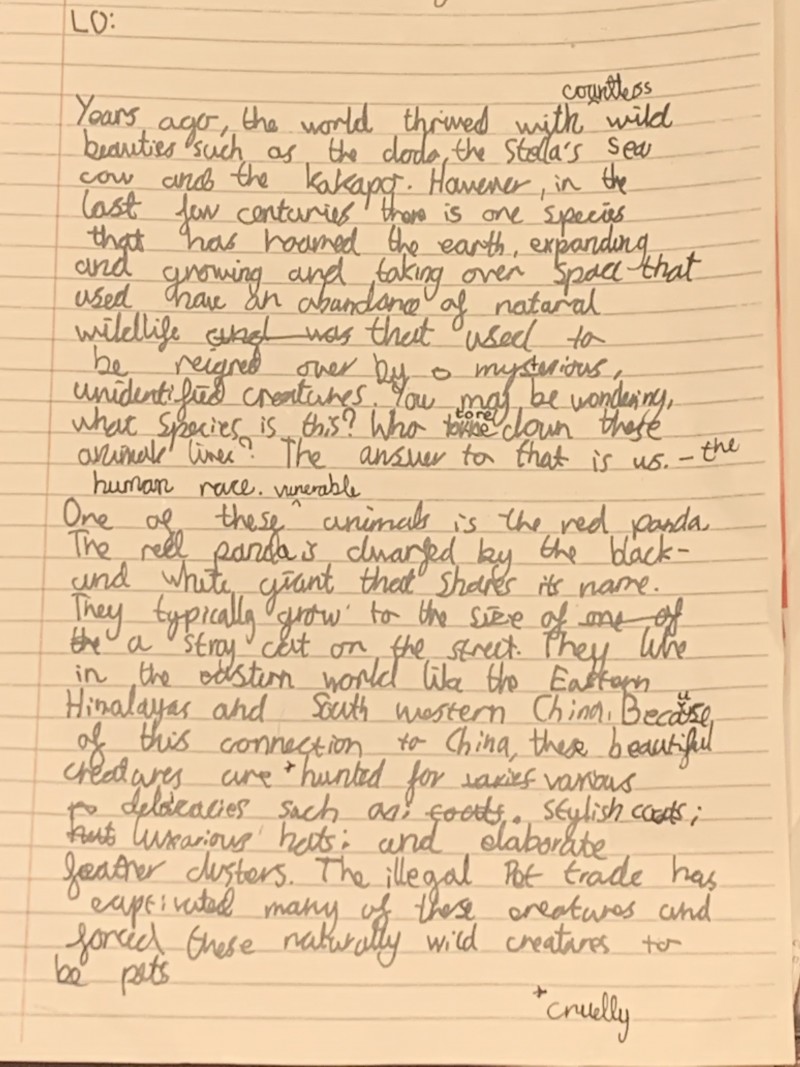 LO:
countless
Years ago, the world thrived with wild
beauties such as the dodo, the Stella's Sea
cow and the kakapo. However, in the
last few centuries there is one species
that has roamed the earth, expanding
and growing and taking over space that
used have an abundance of nataral
wildlife and was that used to
be reigned over by a mysterious,
unidentified creatures. You may be wondering,
what species is this? Who tore down these
animals lives? The answer to that is us. - the
human race. vunerable
One of these ^ animals is the red panda.
The red panda is dwarfed by the black-
and white giant that shares its name.
They typically grow to the size of one of
the a stray cat on the street. They live
in the eastern world like the Eastern
Himalayas and South western China. Because
of this connection to China, these beautiful
creatures are + hunted for various
delicacies such as: coats. stylish coats;
hats luxarious hats; and elaborate
feather dusters. The illegal Pet trade has
captivated many of these creatures and
forced these naturally wild creatares to
be pets
+cruelly